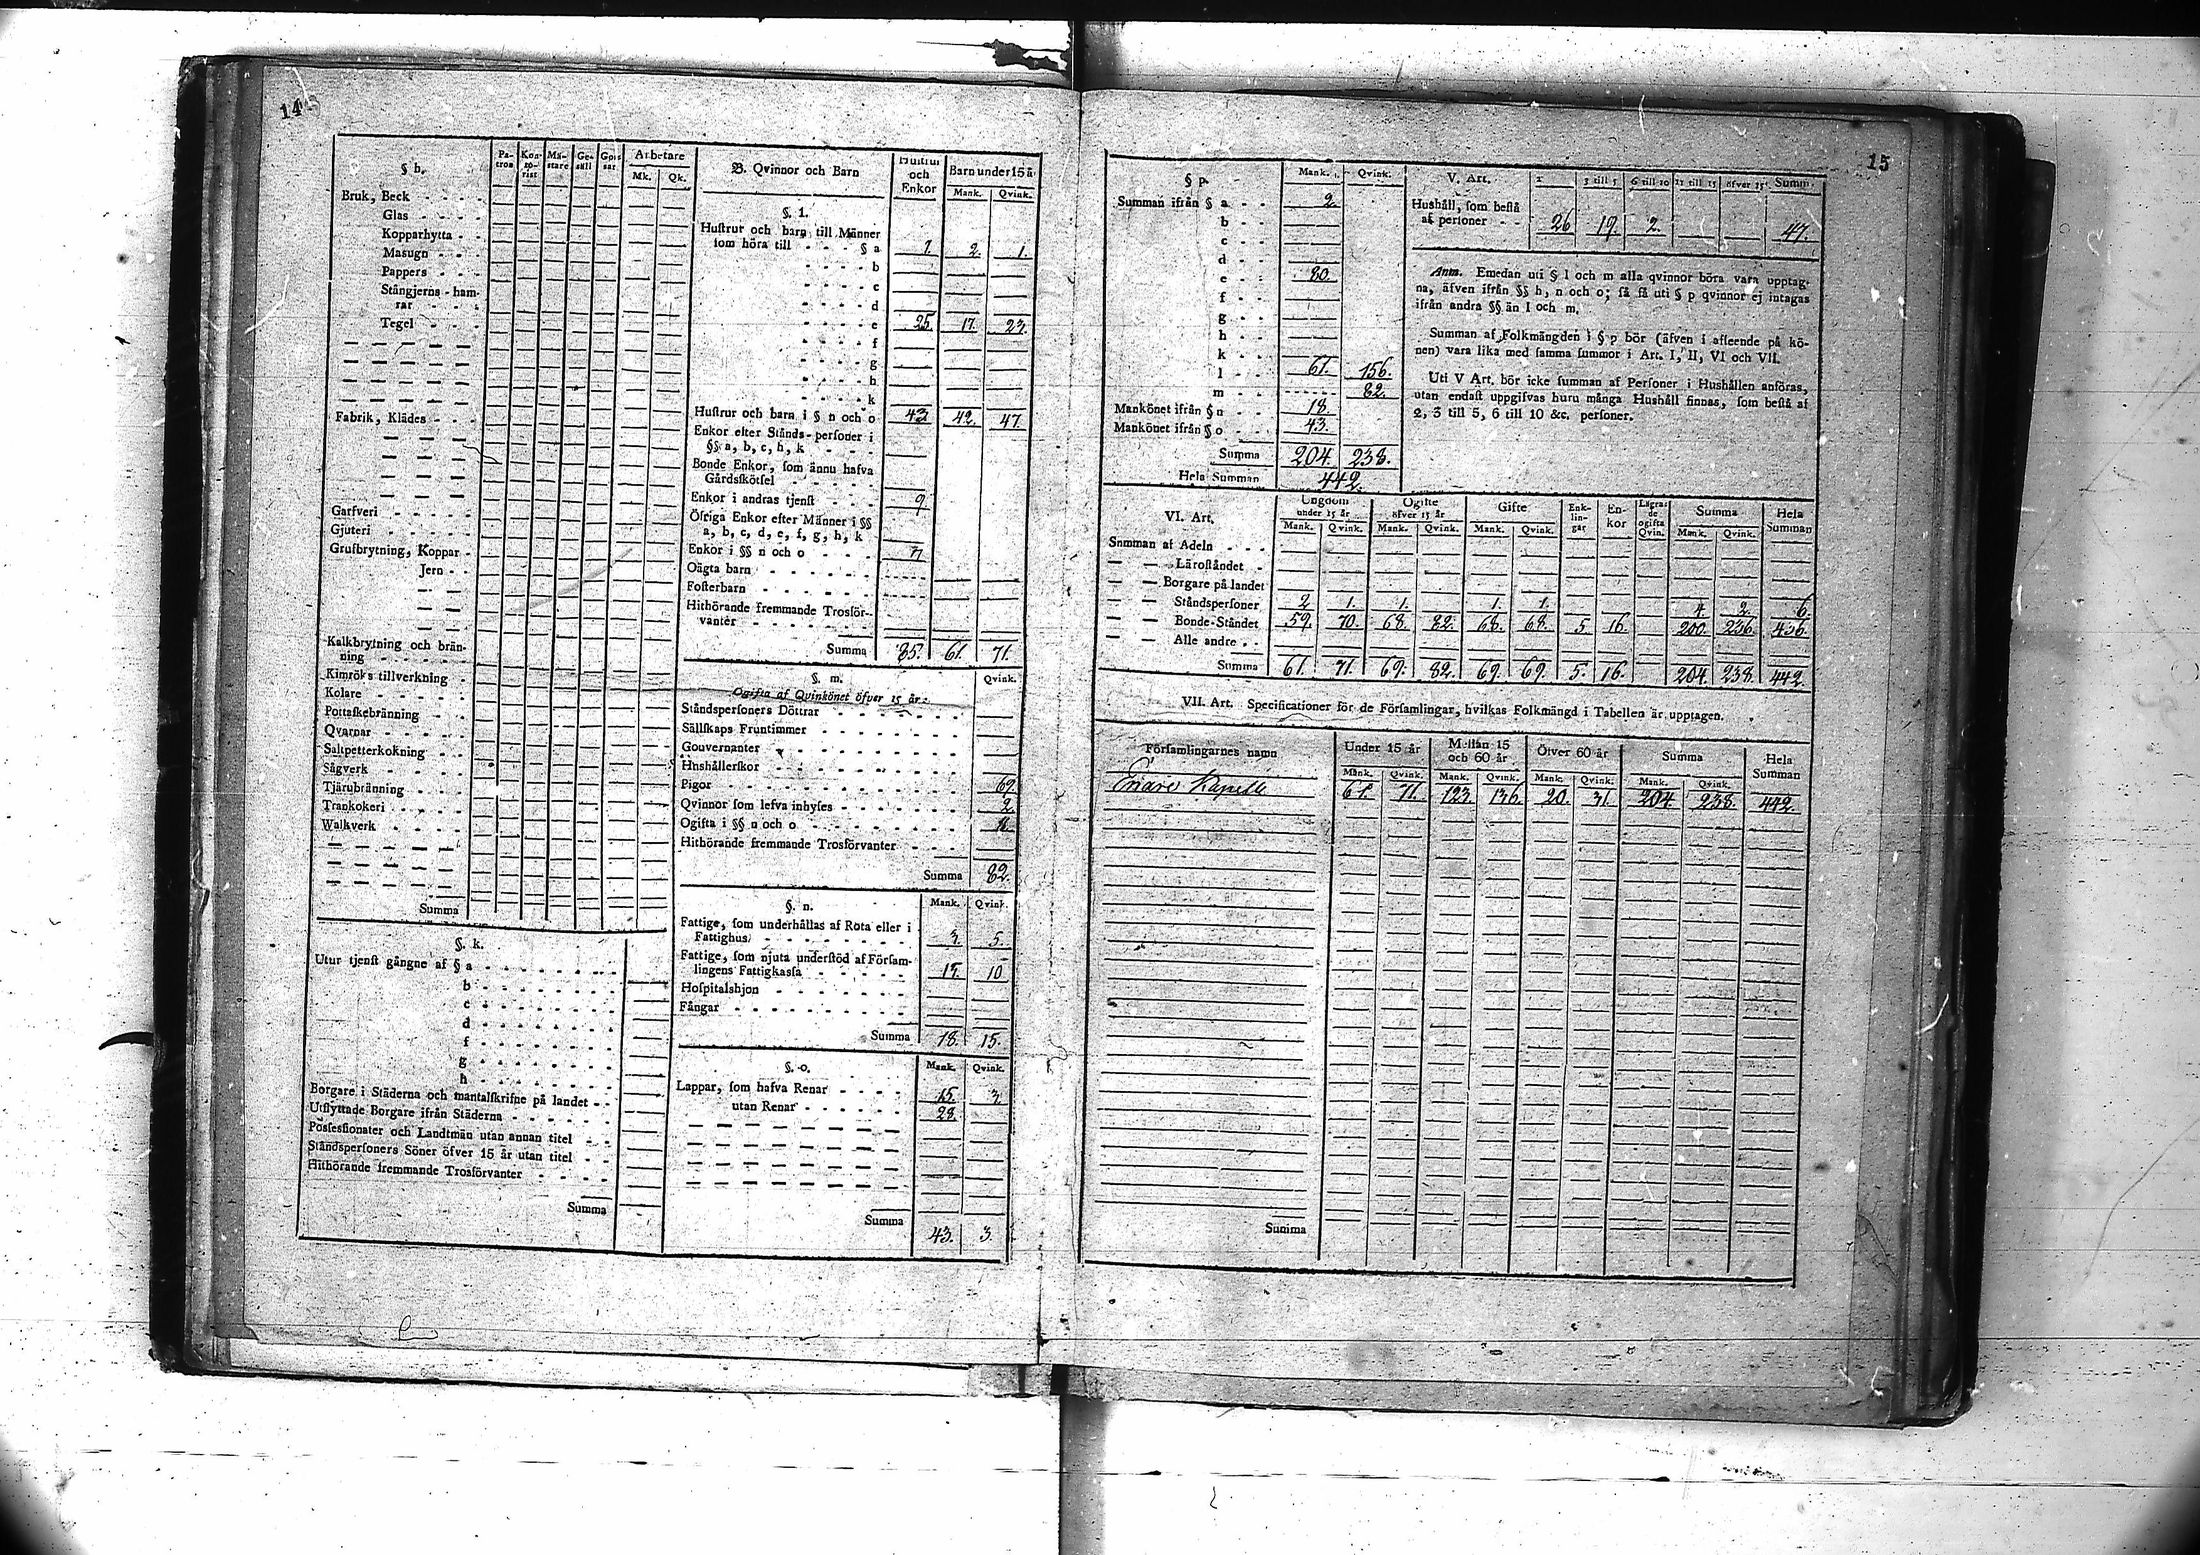 14
§ h.
Pa- tron
Kon- to- rist
Mä- stare
Ge- säll
Gos- sar
Arbetare
Mk. Qk.
Bruk, Beck
Glas
Kopparhytta
Masugn
Pappers
Stångjerns-ham-
rar
Tegel
Fabrik, Klädes
Garfveri
Gjuteri
Grufbrytning, Koppar
Jern
Kalkbrytning och brän-
ning
Kimröks tillverkning
Kolare
Pottaſkebränning
Qvarnar
Saltpetterkokning
Sågverk
Tjärubränning
Trankokeri
Walkverk
Summa
§. k.
Utur tjenſt gångne af § a
b
c
d
f
g
h
Borgare i Städerna och mantalſkrifne på landet
Utflyttade Borgare ifrån Städerna
Posſesſionater och Landtmän utan annan titel
Ståndsperſoners Söner öfver 15 år utan titel
Hithörande fremmande Trosförvanter
Summa
B. Qvinnor och Barn
Huſtrur och Enkor
Barn under 15 å
Mank. Qvink.
§. l.
Huſtrur och barn till Männer
ſom höra till § a 1 2. 1.
b
c
d
e 25. 17. 23.
f
g
h
k
Huſtrur och barn i § n och o 43 42. 47.
Enkor efter Stånds-perſoner i
§§ a, b, c, h, k
Bonde Enkor, ſom ännu hafva
Gårdsſkötſel
Enkor i andras tjenſt 9
Öfriga Enkor efter Männer i §§
a, b, c, d, e, f, g, h, k
Enkor i §§ n och o 7
Oägta barn
Foſterbarn
Hithörande fremmande Trosför-
vanter
Summa 85. 61. 71.
§. m.
Qvink.
Ogifta af Qvinkönet öfver 15 år:
Ståndsperſoners Döttrar
Sällſkaps Fruntimmer
Gouvernanter
Hushållerſkor
Pigor 69.
Qvinnor ſom lefva inhyſes 2.
Ogifta i §§ n och o
Hithörande fremmande Trosförvanter
Summa 82.
§. n.
Mank. Qvink.
Fattige, ſom underhållas af Rota eller i
Fattighus 3. 5.
Fattige, ſom njuta underſtöd af Förſam-
lingens Fattigkasſa 15. 10
Hoſpitalshjon
Fångar
Summa 18. 15.
§. o.
Mank. Qvink.
Lappar, ſom hafva Renar 15. 3
utan Renar 28.
Summa 43. 3.
15
§ p.
Mank. Qvink.
Summan ifrån § a 2.
b
c
d
e 80.
f
g
h
k
l 61. 156.
m 82.
Mankönet ifrån § n 18.
Mankönet ifrån § o 43.
Summa 204. 238.
Hela Summan 442.
V. Art. 2 3 till 5 6 till 10 11 till 15 öfver 15 Summ.
Hushåll, ſom beſtå
af perſoner 26 19. 2. 47.
Anm. Emedan uti § l och m alla qvinnor böra vara upptag-
na, äfven ifrån §§ h, n och o; ſå få uti § p qvinnor ej intagas
ifrån andra §§ än l och m.
Summan af Folkmängden i § p bör (äfven i afſeende på kö-
nen) vara lika med ſamma ſummor i Art. I, II, VI och VII.
Uti V Art. bör icke ſumman af Perſoner i Hushållen anföras,
utan endaſt uppgifvas huru många Hushåll finnas, ſom beſtå af
2, 3 till 5, 6 till 10 &c. perſoner.
VI. Art.
Ungdom under 15 år
Ogifte öfver 15 år
Gifte
Enk- lin- gar
En- kor
Lägra- de ogifta Qvin.
Summa
Hela Summan
Mank. Qvink. Mank. Qvink. Mank. Qvink. Mank. Qvink.
Summan af Adeln
— — Läroſtåndet
— — Borgare på landet
— — Ståndsperſoner 2 1. 1. 1. 1. 4. 2. 6.
— — Bonde-Ståndet 59. 70. 68. 82. 68. 68. 5. 16. 200. 236. 436.
— — Alle andre
Summa 61. 71. 69. 82. 69. 69. 5. 16. 204. 238. 442.
VII. Art. Specificationer för de Förſamlingar, hvilkas Folkmängd i Tabellen är upptagen.
Förſamlingarnes namn
Under 15 år
Mellan 15 och 60 år
Öfver 60 år
Summa
Hela Summan
Mank. Qvink. Mank. Qvink. Mank. Qvink. Mank. Qvink.
Enare Kapell 61. 71. 123. 136. 20. 31. 204. 238. 442.
Summa